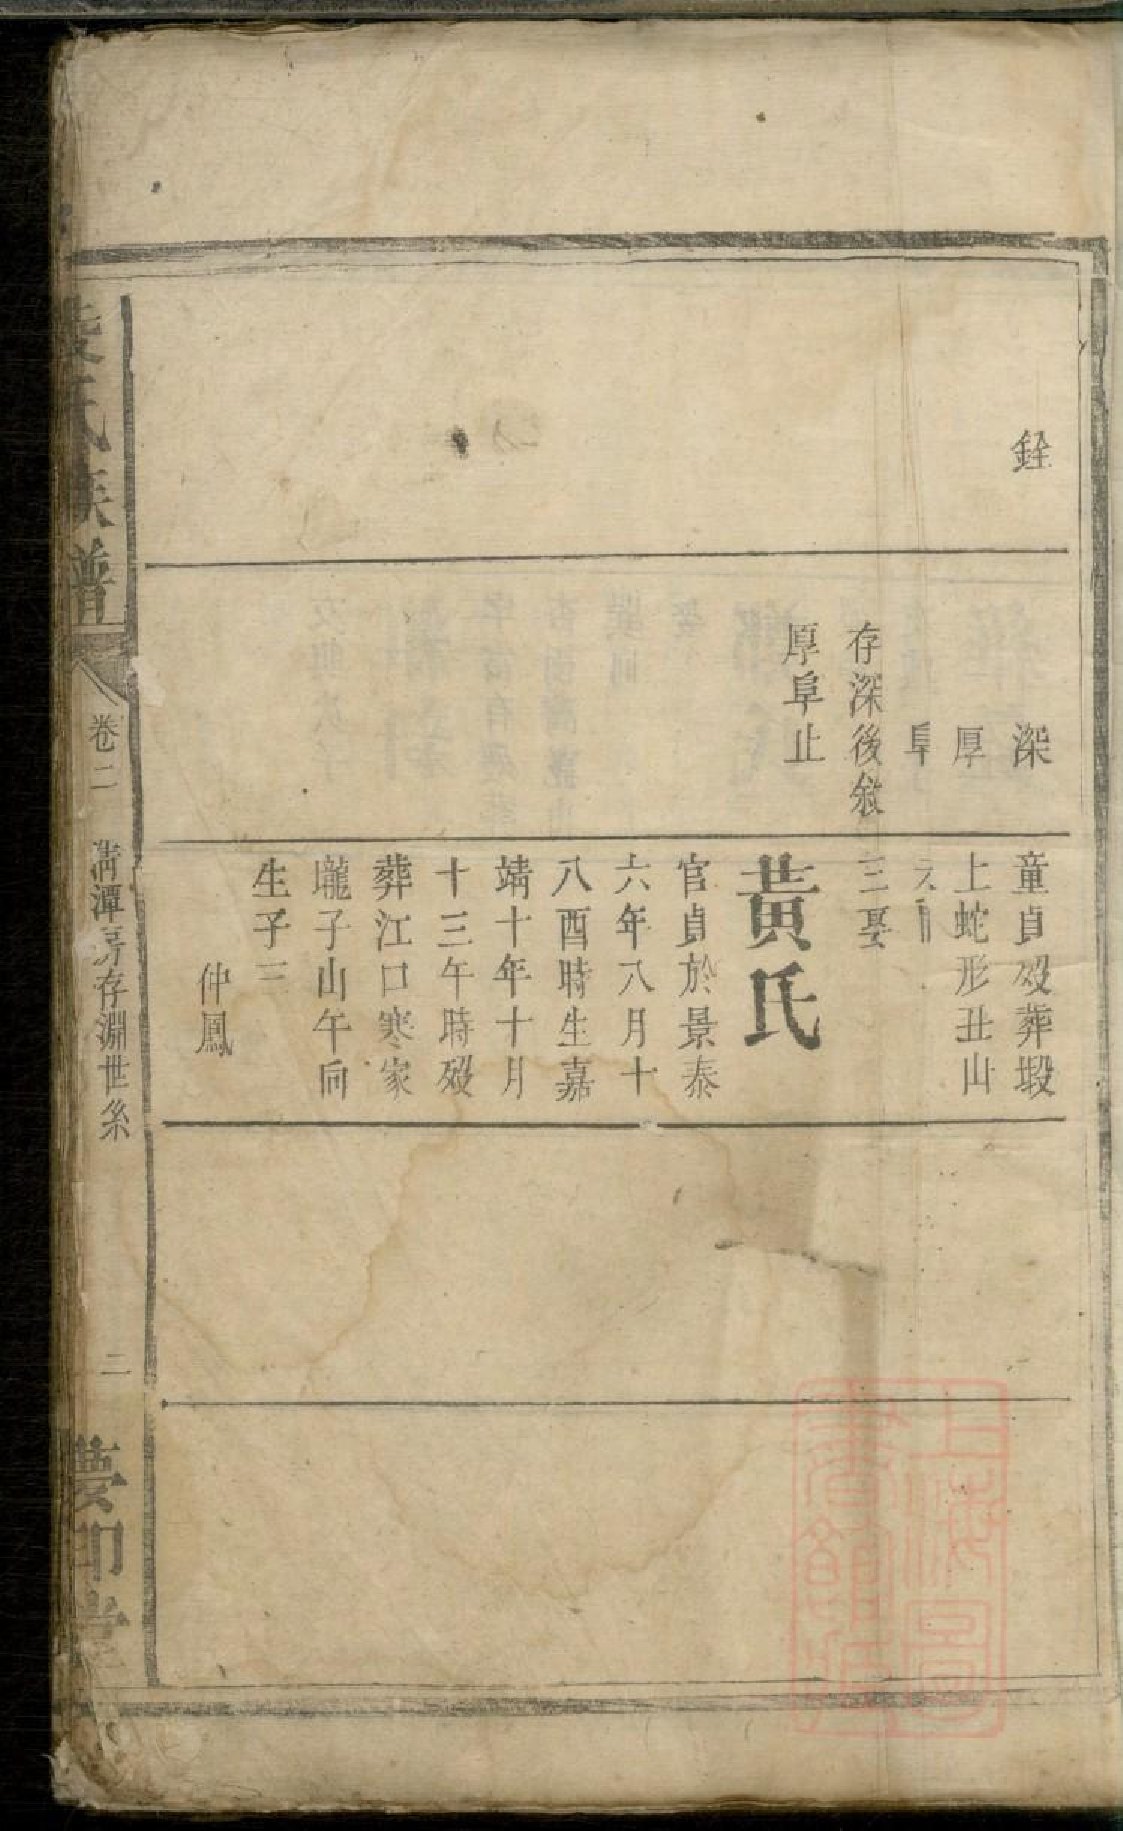 銓
深
厚
阜
存深後敘
厚阜止
童貞歿葬塅
上蛇形丑山
三娶
黃氏
官貞於景泰
六年八月十
八酉時生嘉
靖十年十月
十三午時歿
葬江口寒家
壠子山午向
生子三
仲鳳
氏族譜
卷二
潭房存淵世系
二
夢卽堂
上海圖
書館藏